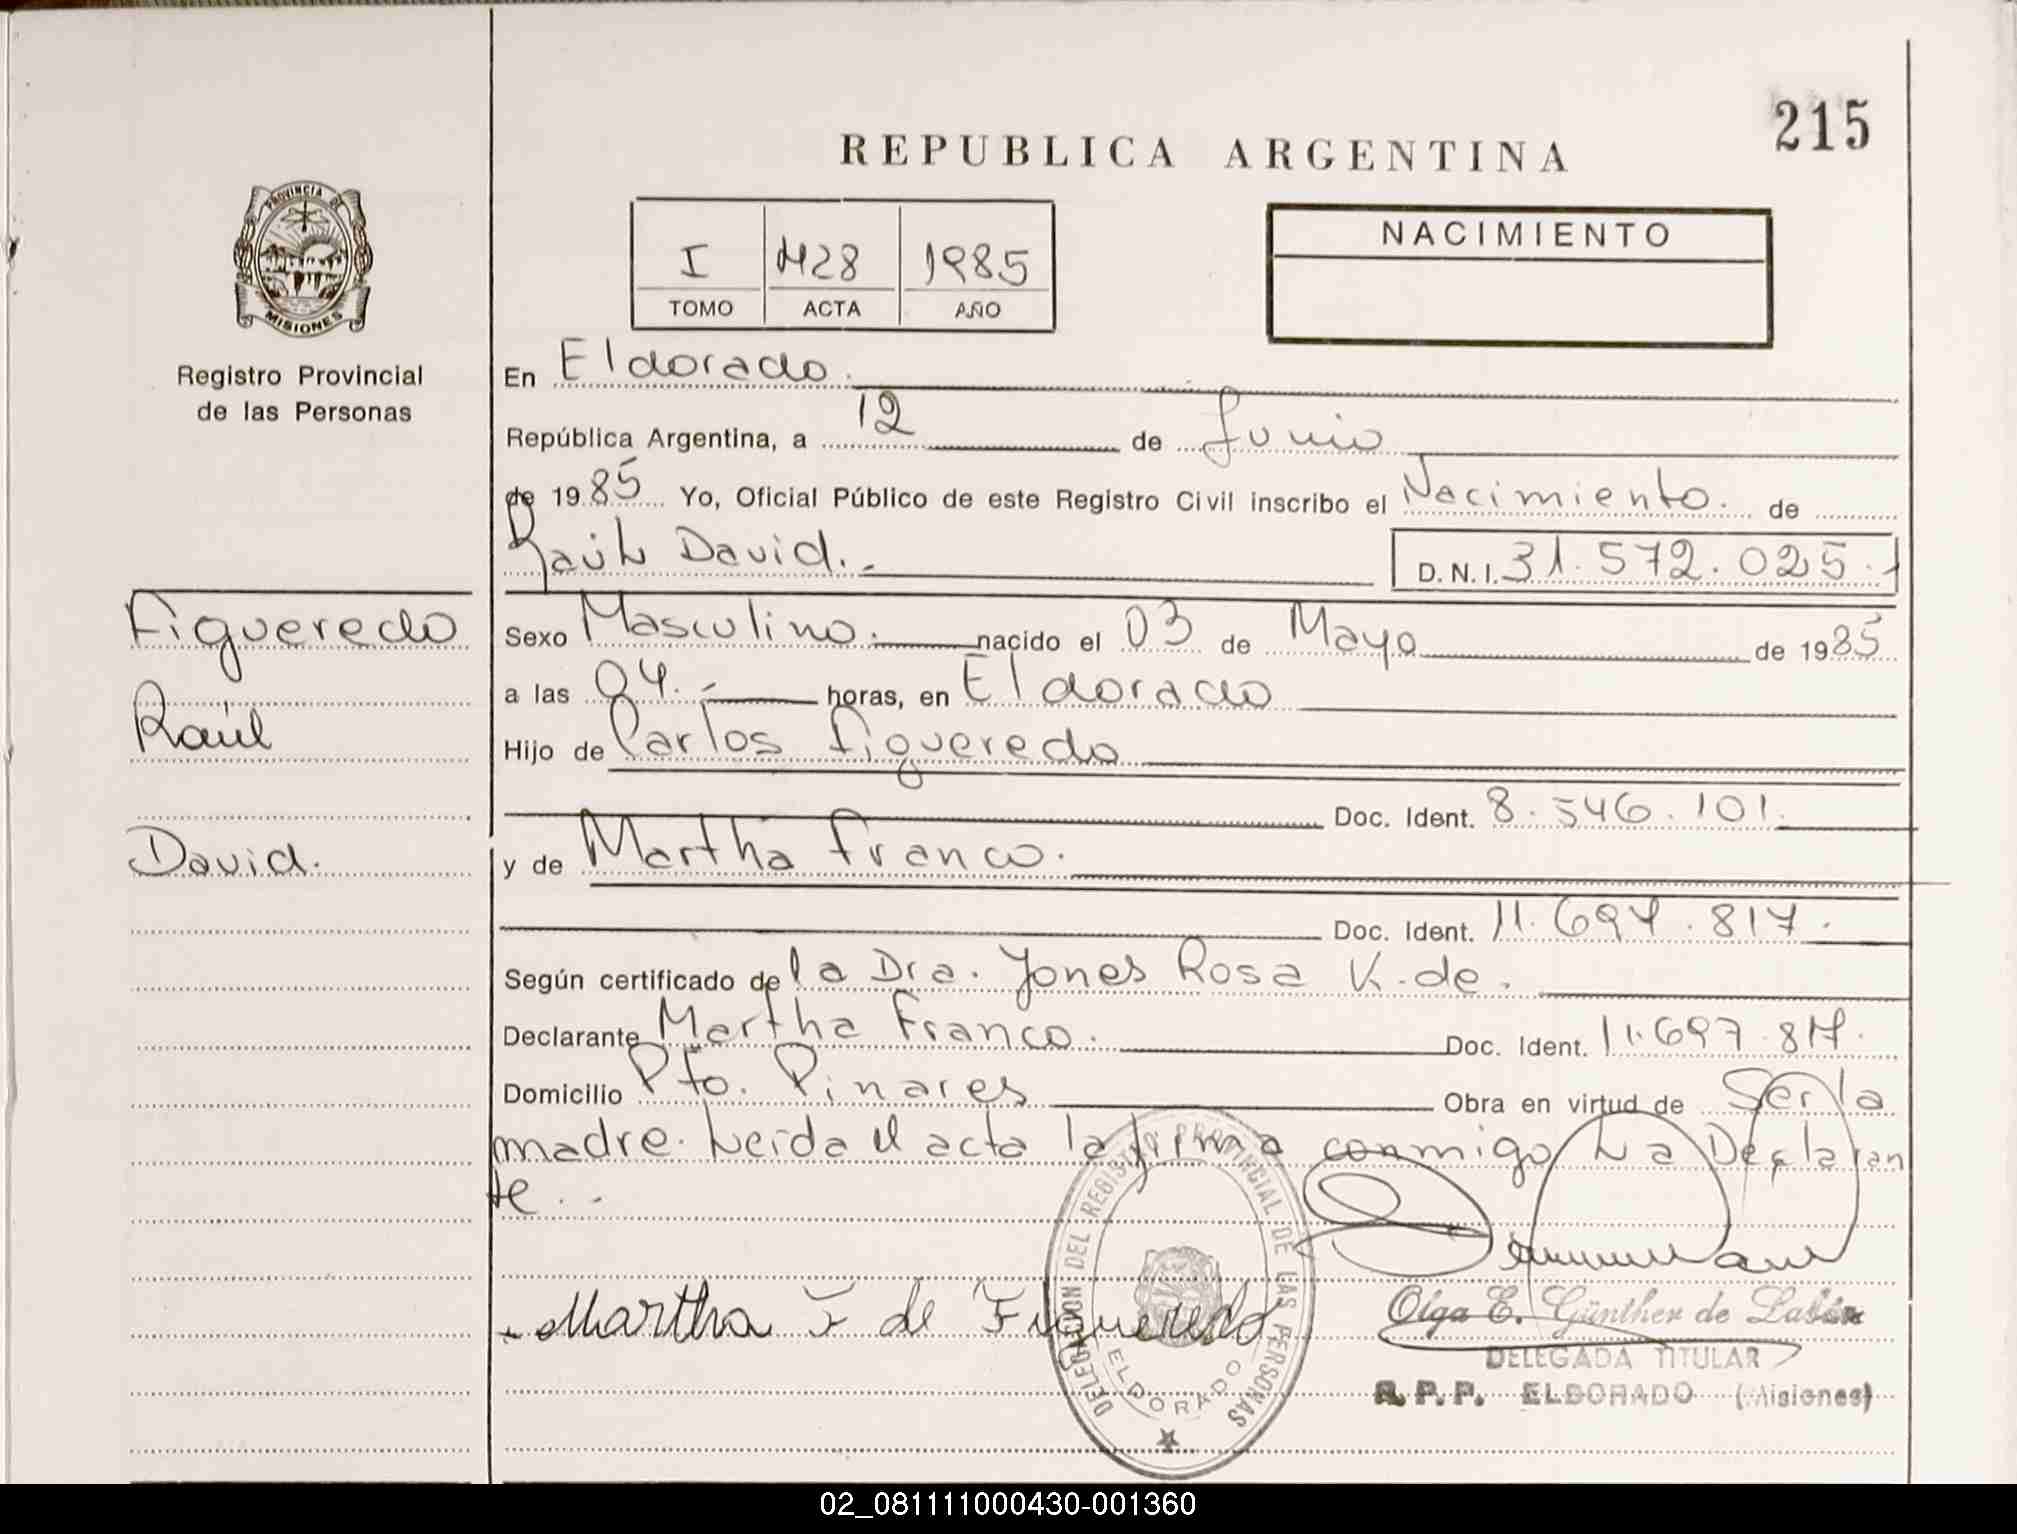 215
REPUBLICA ARGENTINA
PROVINCIA DE
MISIONES
Registro Provincial
de las Personas
I 428 1985
TOMO ACTA AÑO
NACIMIENTO
En Eldorado.
República Argentina, a 12 de Junio
de 1985 Yo, Oficial Público de este Registro Civil inscribo el Nacimiento. de
Raúl David.- D.N.I. 31.572.025.
Figueredo
Raúl
David.
Sexo Masculino. nacido el 03 de Mayo de 1985
a las 04.- horas, en Eldorado
Hijo de Carlos Figueredo
Doc. Ident. 8.546.101.
y de Martha Franco.
Doc. Ident. 11.697.817.
Según certificado de la Dra. Yones Rosa K. de.
Declarante Martha Franco. Doc. Ident. 11.697.817.
Domicilio Pto. Pinares Obra en virtud de Ser la
madre. Leída el acta la firma conmigo La Declaran
te. -
Martha F de Figueredo
DELEGACION DEL REGISTRO PROVINCIAL DE LAS PERSONAS
ELDORADO
Olga E. Günther de
DELEGADA TITULAR
R.P.P. ELDORADO (Misiones)
02_081111000430-001360